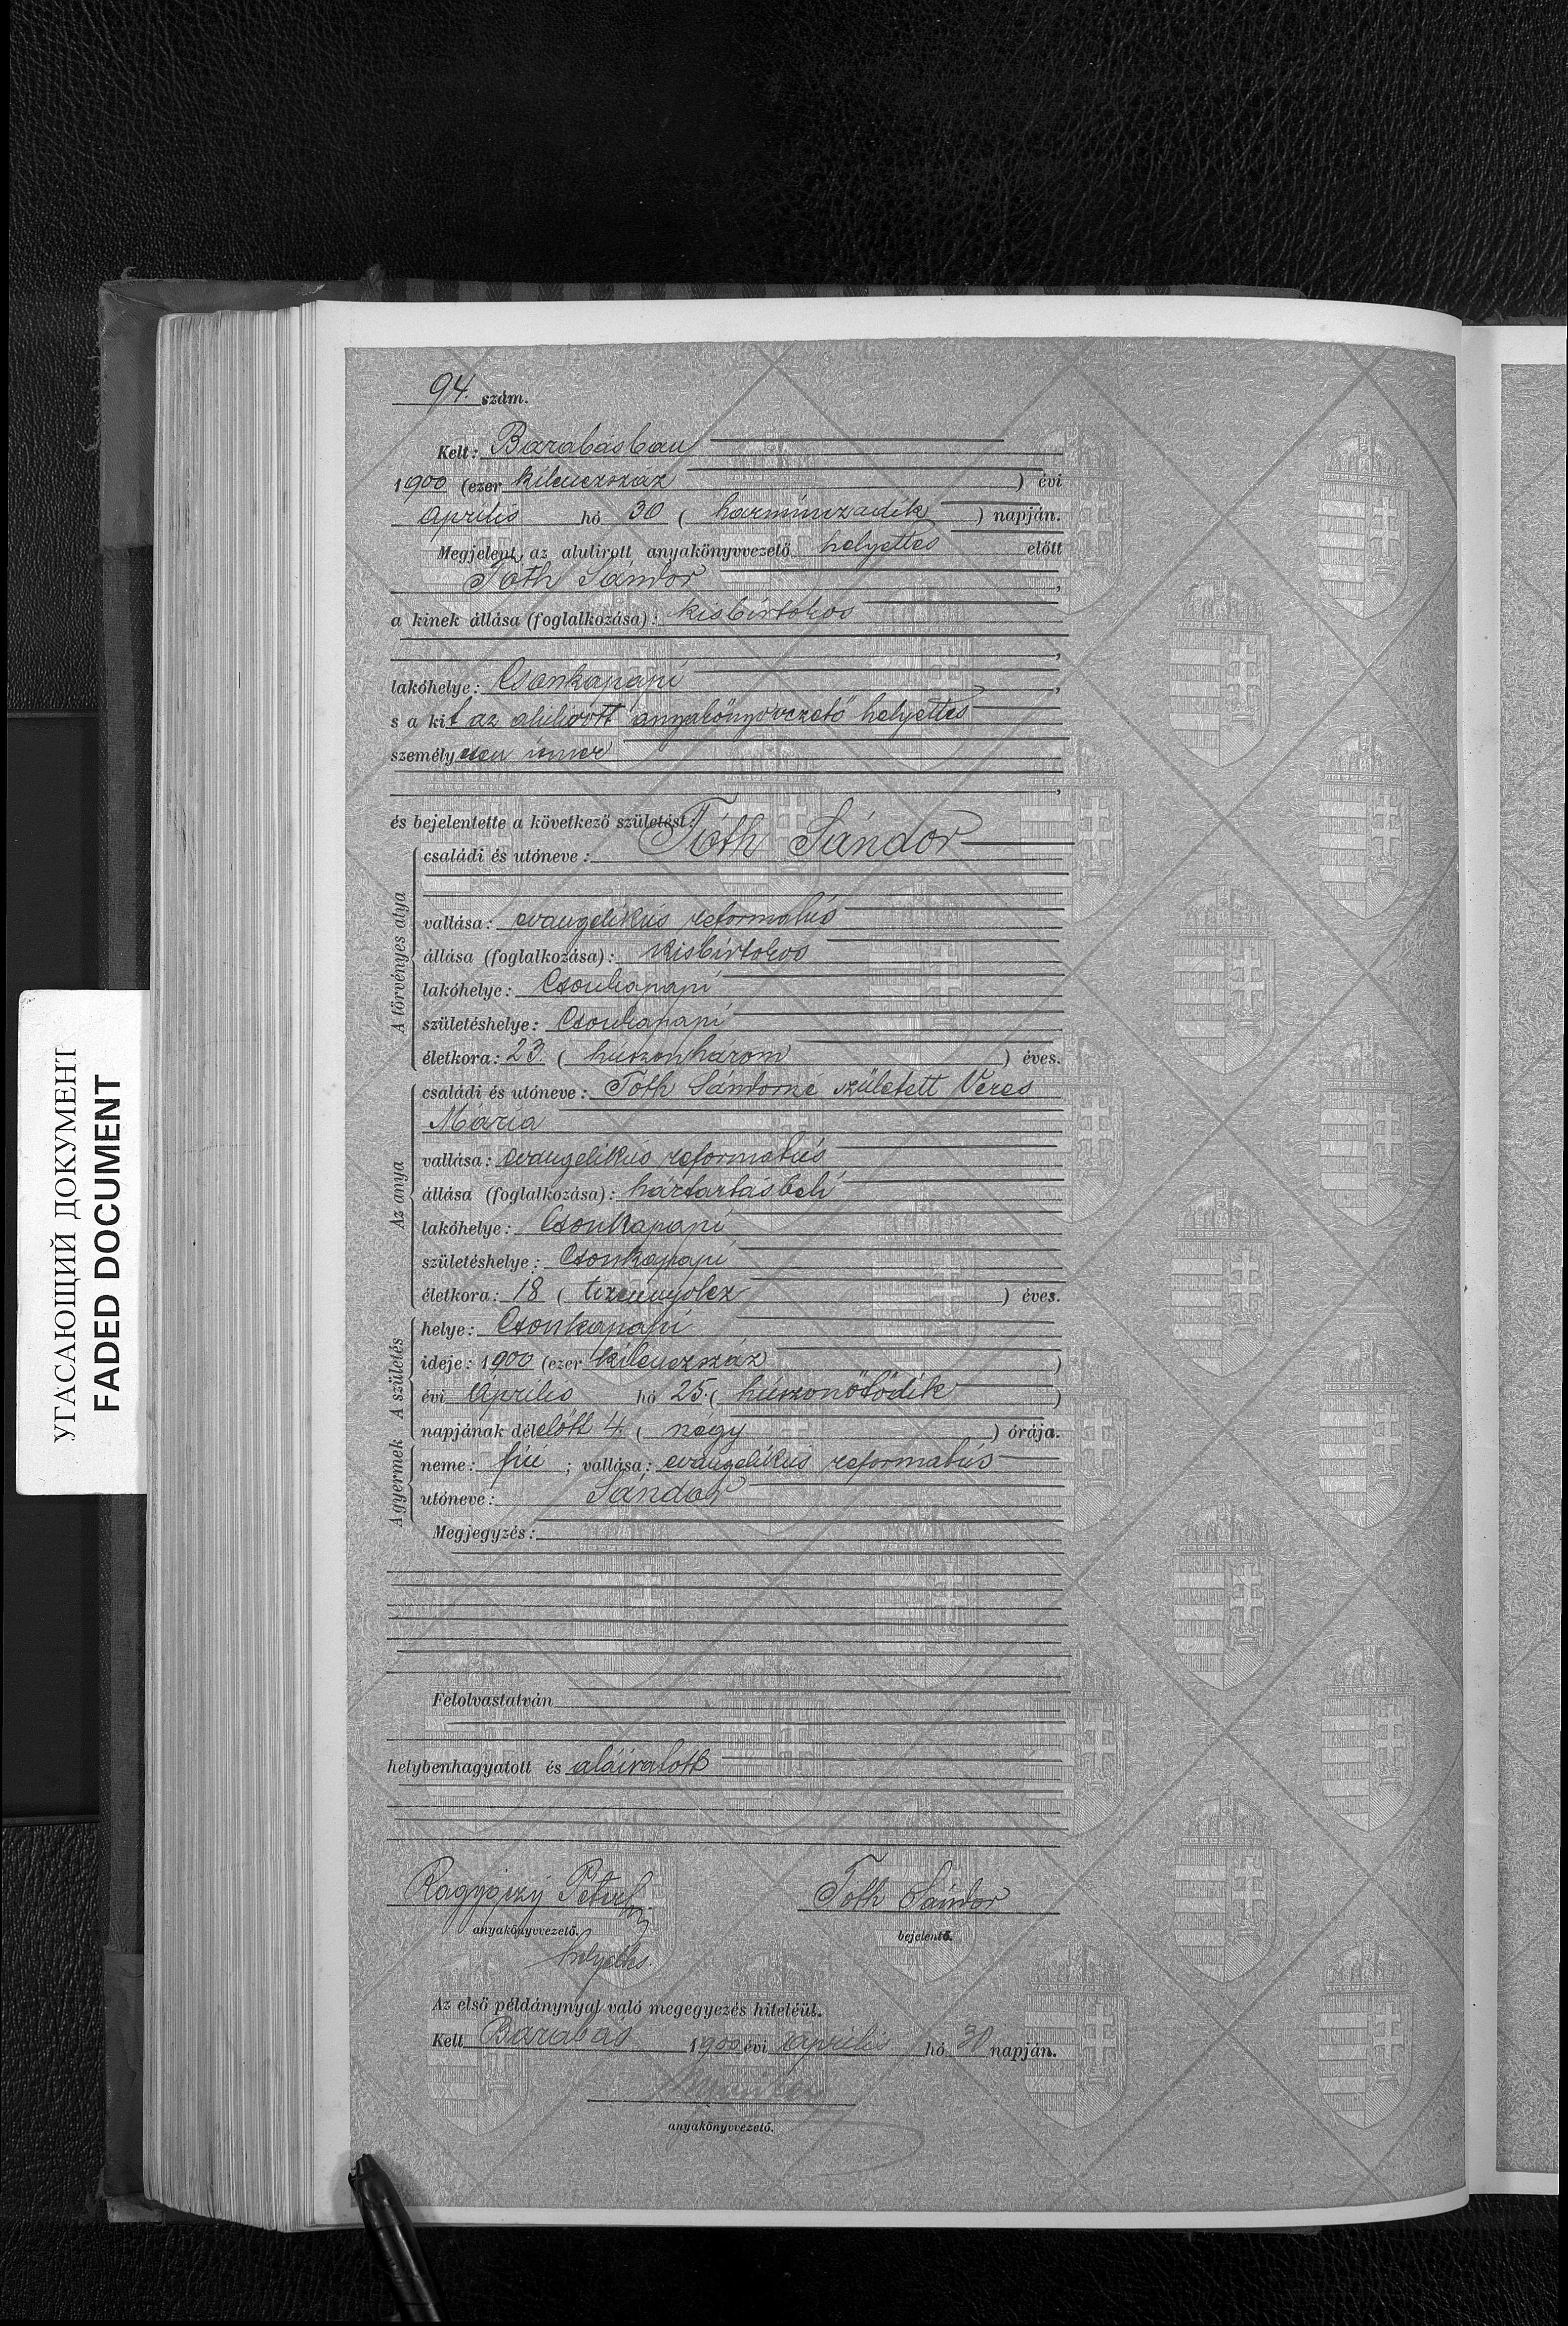 УГАСАЮЩИЙ ДОКУМЕНТ
FADED DOCUMENT
94. szám.
Kelt: Barabásban
1900 (ezer kilenczszáz ) évi
április hó 30 ( harminczadik ) napján.
Megjelent az alulirott anyakönyvvezető helyettes előtt
Tóth Sándor ,
a kinek állása (foglalkozása): kisbirtokos
,
lakóhelye: Csonkapapi ,
s a kit az alulirott anyakönyvvezető helyettes
személyesen ismer
,
és bejelentette a következő születést:
A törvényes atya
családi és utóneve: Tóth Sándor
vallása: evangelikus reformatus
állása (foglalkozása): kisbirtokos
lakóhelye: Csonkapapi
születéshelye: Csonkapapi
életkora: 23. ( huszonhárom ) éves.
Az anya
családi és utóneve: Tóth Sándorné született Veres
Mária
vallása: evangelikus reformatus
állása (foglalkozása): háztartásbeli
lakóhelye: Csonkapapi
születéshelye: Csonkapapi
életkora: 18 ( tizennyolcz ) éves.
A születés
helye: Csonkapapi
ideje: 1900 (ezer kilenczszáz )
évi április hó 25. ( huszonötödik )
napjának délelőtt 4. ( négy ) órája.
A gyermek
neme: fiú ; vallása: evangelikus reformatus
utóneve: Sándor
Megjegyzés:
Felolvastatván
helybenhagyatott és aláiratott
Péter Tóth Sándor
anyakönyvvezető. bejelentő.
helyettes.
Az első példánynyal való megegyezés hiteléül.
Kelt Barabás 1900 évi április hó 30 napján.
anyakönyvvezető.